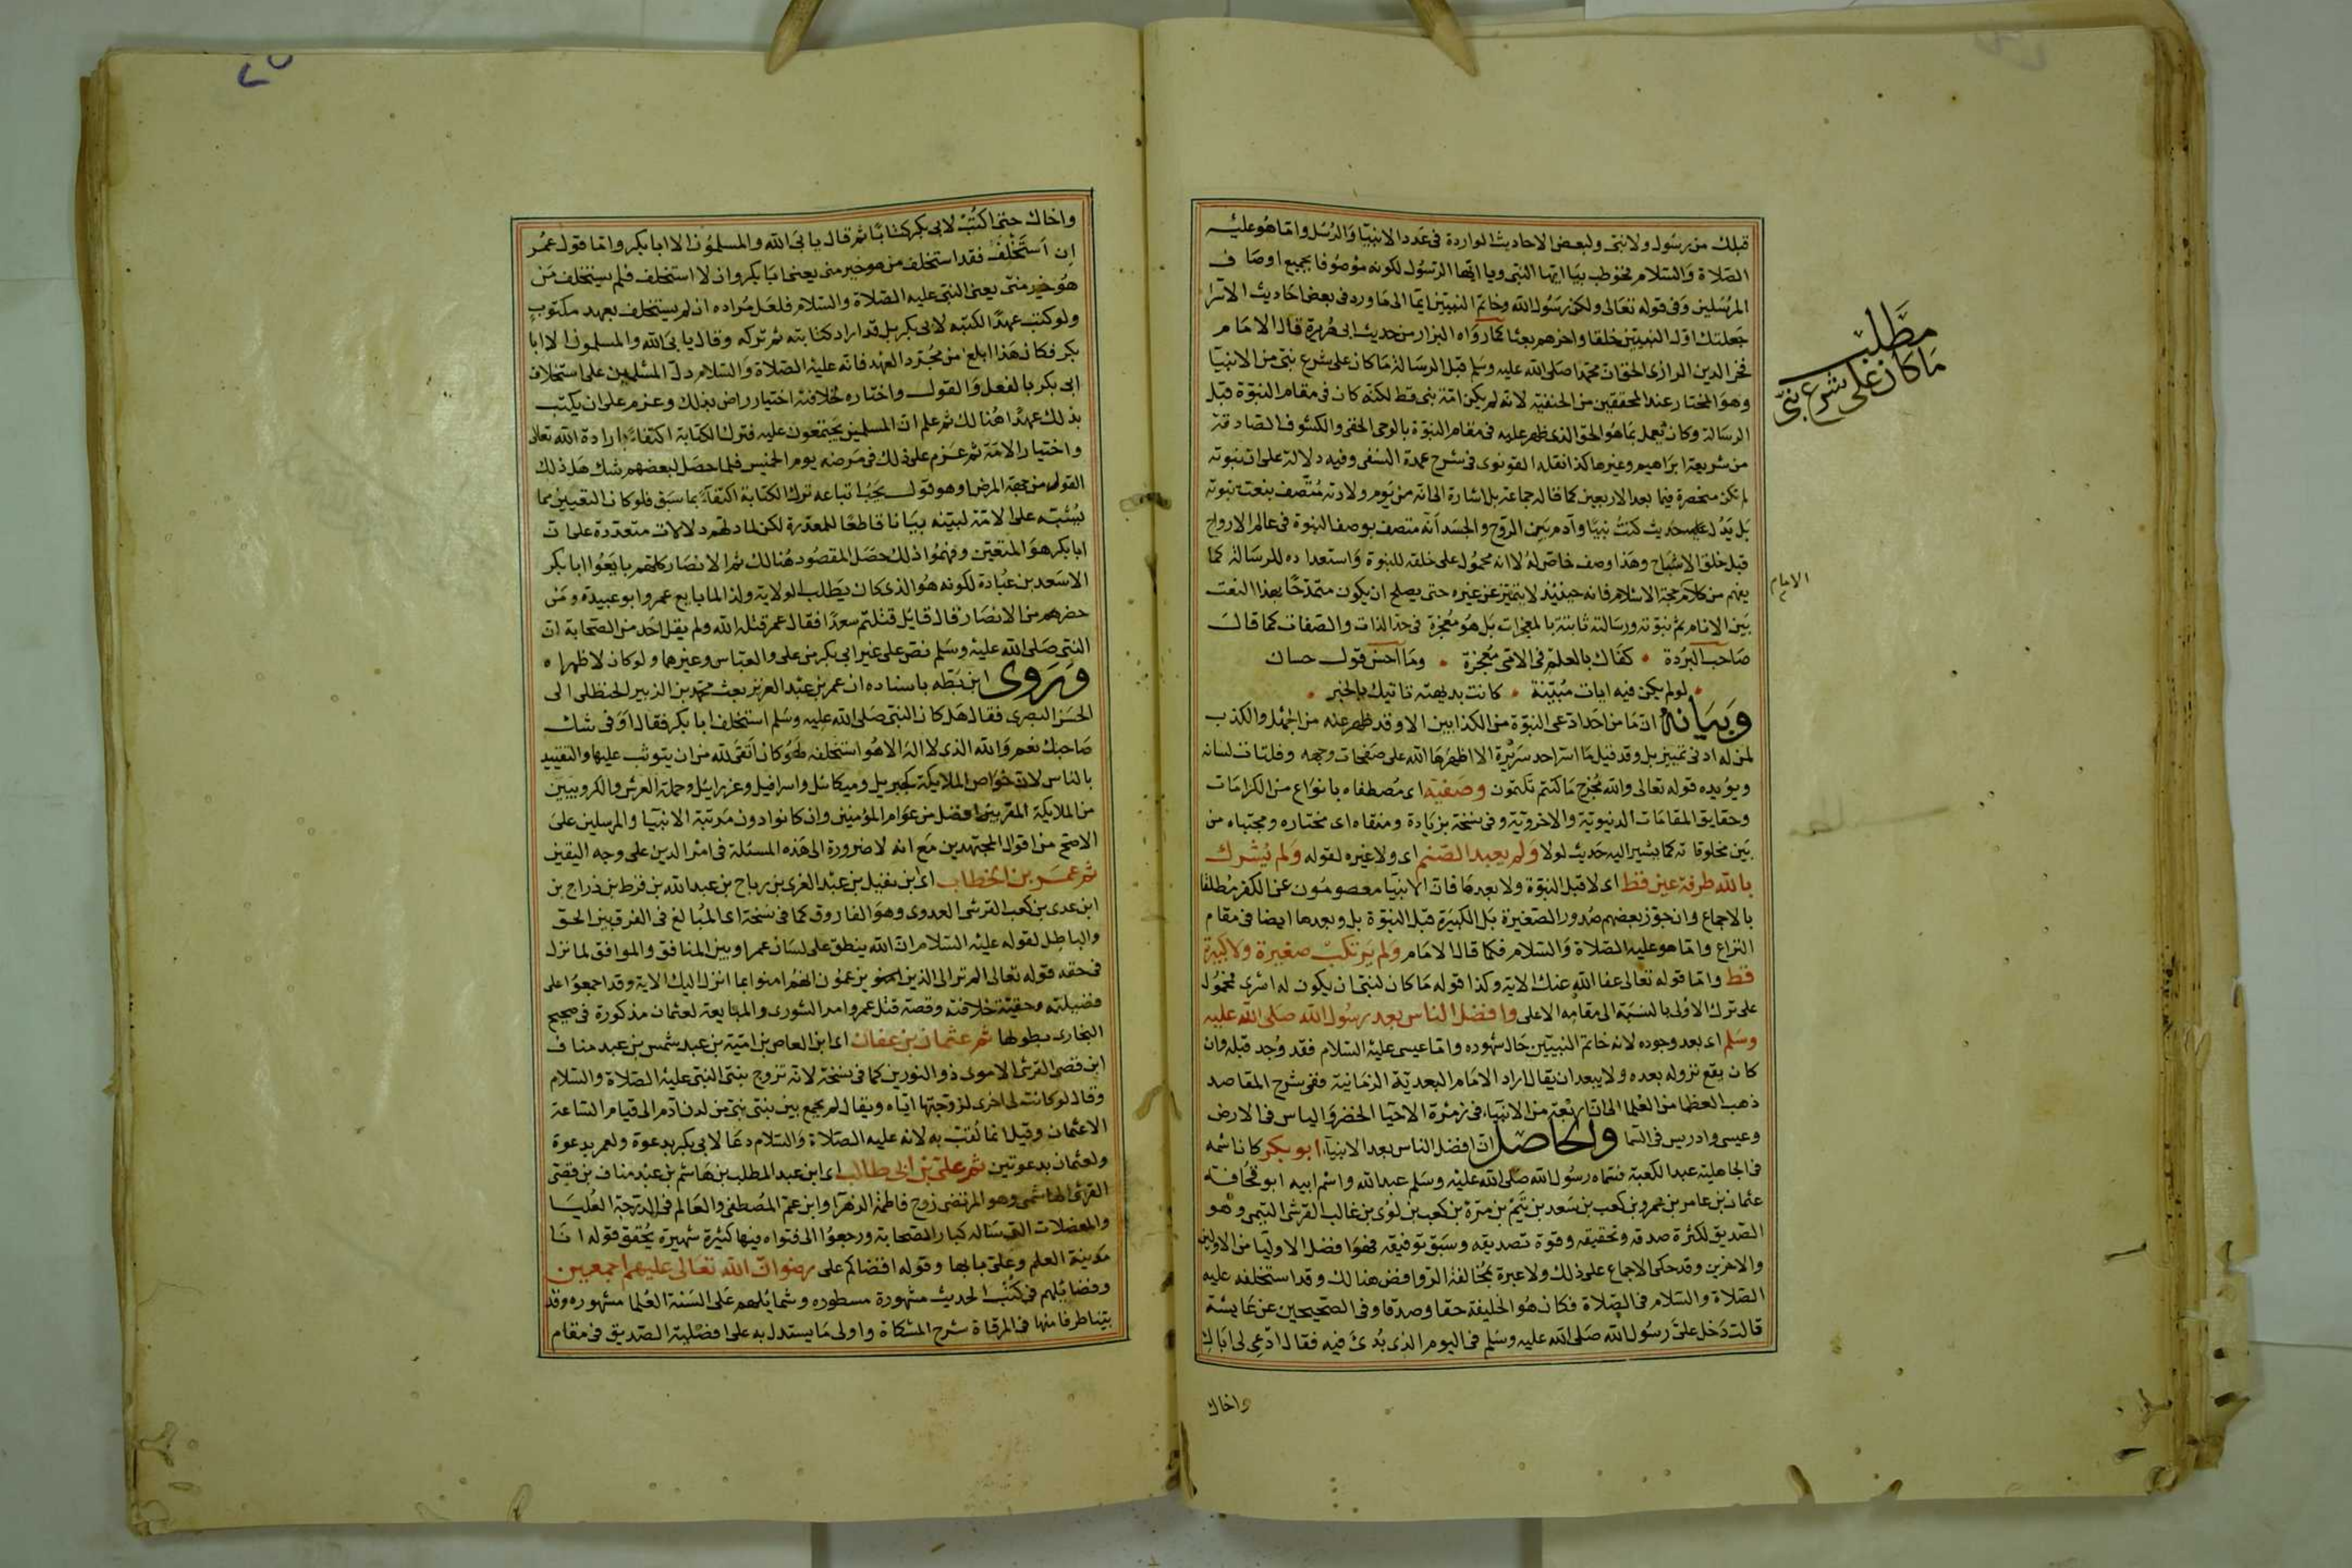 قبلك من رسول ولا نبى ولبعض الاحاديث الواردة فى عدد الانبيا والرسل واما هو عليه
الصلاة والسلام فخوطب بيا ايها النبى ويا ايها الرسول لكونه موصوفا بجميع اوصاف
المرسلين وفى قوله تعالى ولكن رسول الله وخاتم النبيين ايما الى ما ورد فى بعض احاديث الاسرا
جعلتك اول النبيين خلقا واخرهم بعثا كما رواه البزار من حديث ابى هريرة قال الامام
فخر الدين الرازى الحق ان محمدا صلى الله عليه وسلم قبل الرسالة ما كان على شرع نبى من الانبيا
وهو المختار عند المحققين من الحنفية لانه لم يكن امة نبى قط لكنه كان فى مقام النبوة قبل
الرسالة وكان يعمل بما هو الحق الذى ظهر عليه فى مقام النبوة بالوحى الخفى والكشوف الصادقة
من شريعة ابراهيم وغيرها كذا نقله القونوى فى شرح عمدة النسفى وفيه دلالة على ان نبوته
لم تكن منحصرة فيما بعد الاربعين كما قاله جماعة بل اشارة الى انه من يوم ولادته متصف بنعت نبوته
بل يدل عليه حديث كنت نبيا وآدم بين الروح والجسد انه متصف بوصف النبوة فى عالم الارواح
قبل خلق الاشباح وهذا وصف خاص له لا انه محمول على خلقه للنبوة واستعداده للرسالة كما
يفهم من كلام حجة الاسلام فانه حينئذ لا يتميز عن غيره حتى يصلح ان يكون متمدحا بهذا النعت
بين الانام ثم نبوته ورسالته ثابتة بالمعجزات بل هو معجزة فى حد الذات والصفات كما قال
صاحب البردة • كفاك بالعلم فى الامى معجزة • وما احسن قول حسان
• لو لم يكن فيه ايات مبينة • كانت بديهته تاتيك بالخبر •
وبيانه ان ما من احد ادعى النبوة من الكذابين الا وقد ظهر عنه من الجهل والكذب
لمن له ادنى تمييز بل وقد قيل ما اسر احد سريرة الا اظهرها الله على صفحات وجهه وفلتات لسانه
ويؤيده قوله تعالى والله مخرج ما كنتم تكتمون وصفيه اى مصطفاه بانواع من الكرامات
وحقايق المقامات الدنيوية والاخروية وفى نسخة بزيادة ومنقاه اى مختاره ومجتباه من
بين مخلوقاته كما يشير اليه حديث لولا ولم يعبد الصنم اى ولا غيره لقوله ولم يشرك
بالله طرفة عين قط اى لا قبل النبوة ولا بعدها فان الانبيا معصومون عن الكفر مطلقا
بالاجماع وان جوز بعضهم صدور الصغيرة بل الكبيرة قبل النبوة بل وبعدها ايضا فى مقام
النزاع واما هو عليه الصلاة والسلام فكما قال الامام ولم يرتكب صغيرة ولا كبيرة
قط واما قوله تعالى عفا الله عنك الاية وكذا قوله ما كان لنبى ان يكون له اسرى فمحمول
على ترك الاولى بالنسبة الى مقامه الاعلى وافضل الناس بعد رسول الله صلى الله عليه
وسلم اى بعد وجوده لانه خاتم النبيين حال شهوده واما عيسى عليه السلام فقد وجد قبله وان
كان يقع نزوله بعده ولا يبعد ان يقال اراد الامام البعدية الزمانية ففى شرح المقاصد
ذهب العظما من العلما الى ان اربعة من الانبياء فى زمرة الاحيا الخضر والياس فى الارض
وعيسى وادريس فى السما والحاصل ان افضل الناس بعد الانبيآء ابو بكر كان اسمه
فى الجاهلية عبد الكعبة فسماه رسول الله صلى الله عليه وسلم عبد الله واسم ابيه ابو قحافة
عثمان بن عامر بن عمرو بن كعب بن سعد بن تيم بن مرة بن كعب بن لؤى بن غالب القرشى التيمى وهو
الصديق لكثرة صدقه وتحقيقه وقوة تصديقه وسبق توفيقه فهو افضل الاوليا من الاولين
والاخرين وقد حكى الاجماع على ذلك ولا عبرة بمخالفة الروافض هنالك وقد استخلفه عليه
الصلاة والسلام فى الصلاة فكان هو الخليفة حقا وصدقا وفى الصحيحين عن عايشة
قالت دخل على رسول الله صلى الله عليه وسلم فى اليوم الذى بدئ فيه فقال ادعى لى اباك
واخاك
مطلب
ما كان على شرع نبى
الامام
واخاك حتى اكتب لابى بكر كتابا ثم قال يابى الله والمسلمون الا ابا بكر واما قول عمر
ان استخلف فقد استخلف من هو خير منى يعنى ابا بكر وان لا استخلف فلم يستخلف من
هو خير منى يعنى النبى عليه الصلاة والسلام فلعل مراده انه لم يستخلف بعهد مكتوب
ولو كتب عهدا لكتبه لابى بكر بل قد اراد كتابته ثم تركه وقال يابى الله والمسلمون الا ابا
بكر فكان هذا ابلغ من مجرد العهد فانه عليه الصلاة والسلام دل المسلمين على استخلاف
ابى بكر بالفعل والقول واختاره لخلافته اختيار راض بذلك وعزم على ان يكتب
بذلك عهدا هنالك ثم علم ان المسلمين يجتمعون عليه فترك الكتابة اكتفاء بارادة الله تعالى
واختيار الامة ثم عزم على ذلك فى مرضه يوم الخميس فلما حصل لبعضهم شك هل ذلك
القول من جهة المرض او هو قول يجب اتباعه ترك الكتابة اكتفاء بما سبق فلو كان التعيين مما
يشتبه على الامة لبينه بيانا قاطعا للمعذرة لكن لما دلهم دلالات متعددة على ان
ابا بكر هو المتعين وفهموا ذلك حصل المقصود هنالك ثم الانصار كلهم بايعوا ابا بكر
الا سعد بن عبادة لكونه هو الذى كان يطلب الولاية ولذا لما بايع عمر وابو عبيدة ومن
حضرهم من الانصار قال قايل قتلتم سعدا فقال عمر قتله الله ولم يقل احد من الصحابة ان
النبى صلى الله عليه وسلم نص على غير ابى بكر من على والعباس وغيرهما ولو كان لاظهراه
وروى ابن بطه باسناده ان عمر بن عبد العزيز بعث محمد بن الزبير الحنظلى الى
الحسن البصرى فقال هل كان النبى صلى الله عليه وسلم استخلف ابا بكر فقال او فى شك
صاحبك نعم والله الذى لا اله الا هو استخلفه لهو كان اتقى لله من ان يتوثب عليها والتقييد
بالناس لان خواص الملايكة كجبريل وميكائل واسرافيل وعزرايل وحملة العرش والكروبيين
من الملايكة المقربين افضل من عوام المؤمنين وان كانوا دون مرتبة الانبيا والمرسلين على
الاصح من اقوال المجتهدين مع انه لا ضرورة الى هذه المسئلة فى امر الدين على وجه اليقين
ثم عمر بن الخطاب اى ابن نفيل بن عبد العزى بن رباح بن عبد الله بن قرط بن ذراج بن
ابن عدى بن كعب القرشى العدوى وهو الفاروق كما فى نسخة اى المبالغ فى الفرق بين الحق
والباطل لقوله عليه السلام ان الله ينطق على لسان عمر او بين المنافق والموافق لما نزل
فى حقه قوله تعالى الم تر الى الذين يزعمون انهم امنوا بما انزل اليك الاية وقد اجمعوا على
فضيلته وحقية خلافته وقصة قتل عمر وامر الشورى والمبايعة لعثمان مذكورة فى صحيح
البخارى بطولها ثم عثمان بن عفان اى ابن العاص بن امية بن عبد شمس بن عبد مناف
ابن قصى القرشى الاموى ذو النورين كما فى نسخة لانه تزوج بنتى النبى عليه الصلاة والسلام
وقال لو كانت لى اخرى لزوجتها اياه ويقال لم يجمع بين بنتى نبى من لدن آدم الى قيام الساعة
الا عثمان وقيل انما لقب به لانه عليه الصلاة والسلام دعا لابى بكر بدعوة ولعمر بدعوة
ولعثمان بدعوتين ثم على بن ابى طالب اى ابن عبد المطلب بن هاشم بن عبد مناف بن قصى
القرشى الهاشمى وهو المرتضى زوج فاطمة الزهرا وابن عم المصطفى والعالم فى الدرجة العليا
والمعضلات التى ساله كبار الصحابة ورجعوا الى فتواه فيها كثيرة شهيرة يحقق قوله انا
مدينة العلم وعلى بابها وقوله اقضاكم على رضوان الله تعالى عليهم اجمعين
وفضايلهم فى كتب الحديث مشهورة مسطوره وشمايلهم على السنة العلما مشهوره وقد
بينا طرفا منها فى المرقاة شرح المشكاة واولى ما يستدل به على افضلية الصديق فى مقام